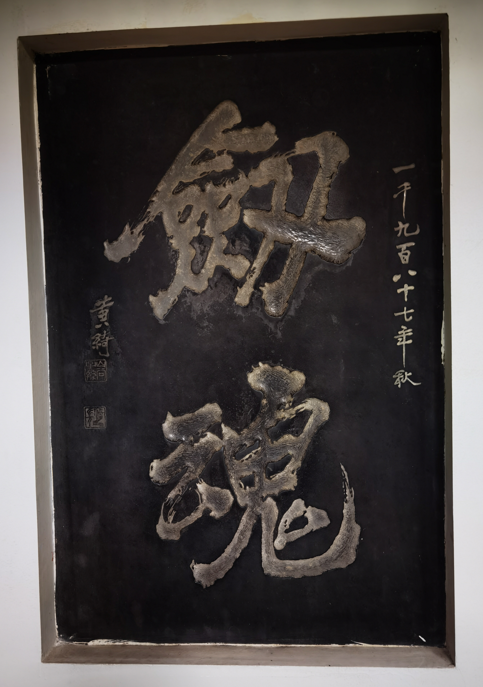 一千九百八十七年秋
劒魂
黄绮